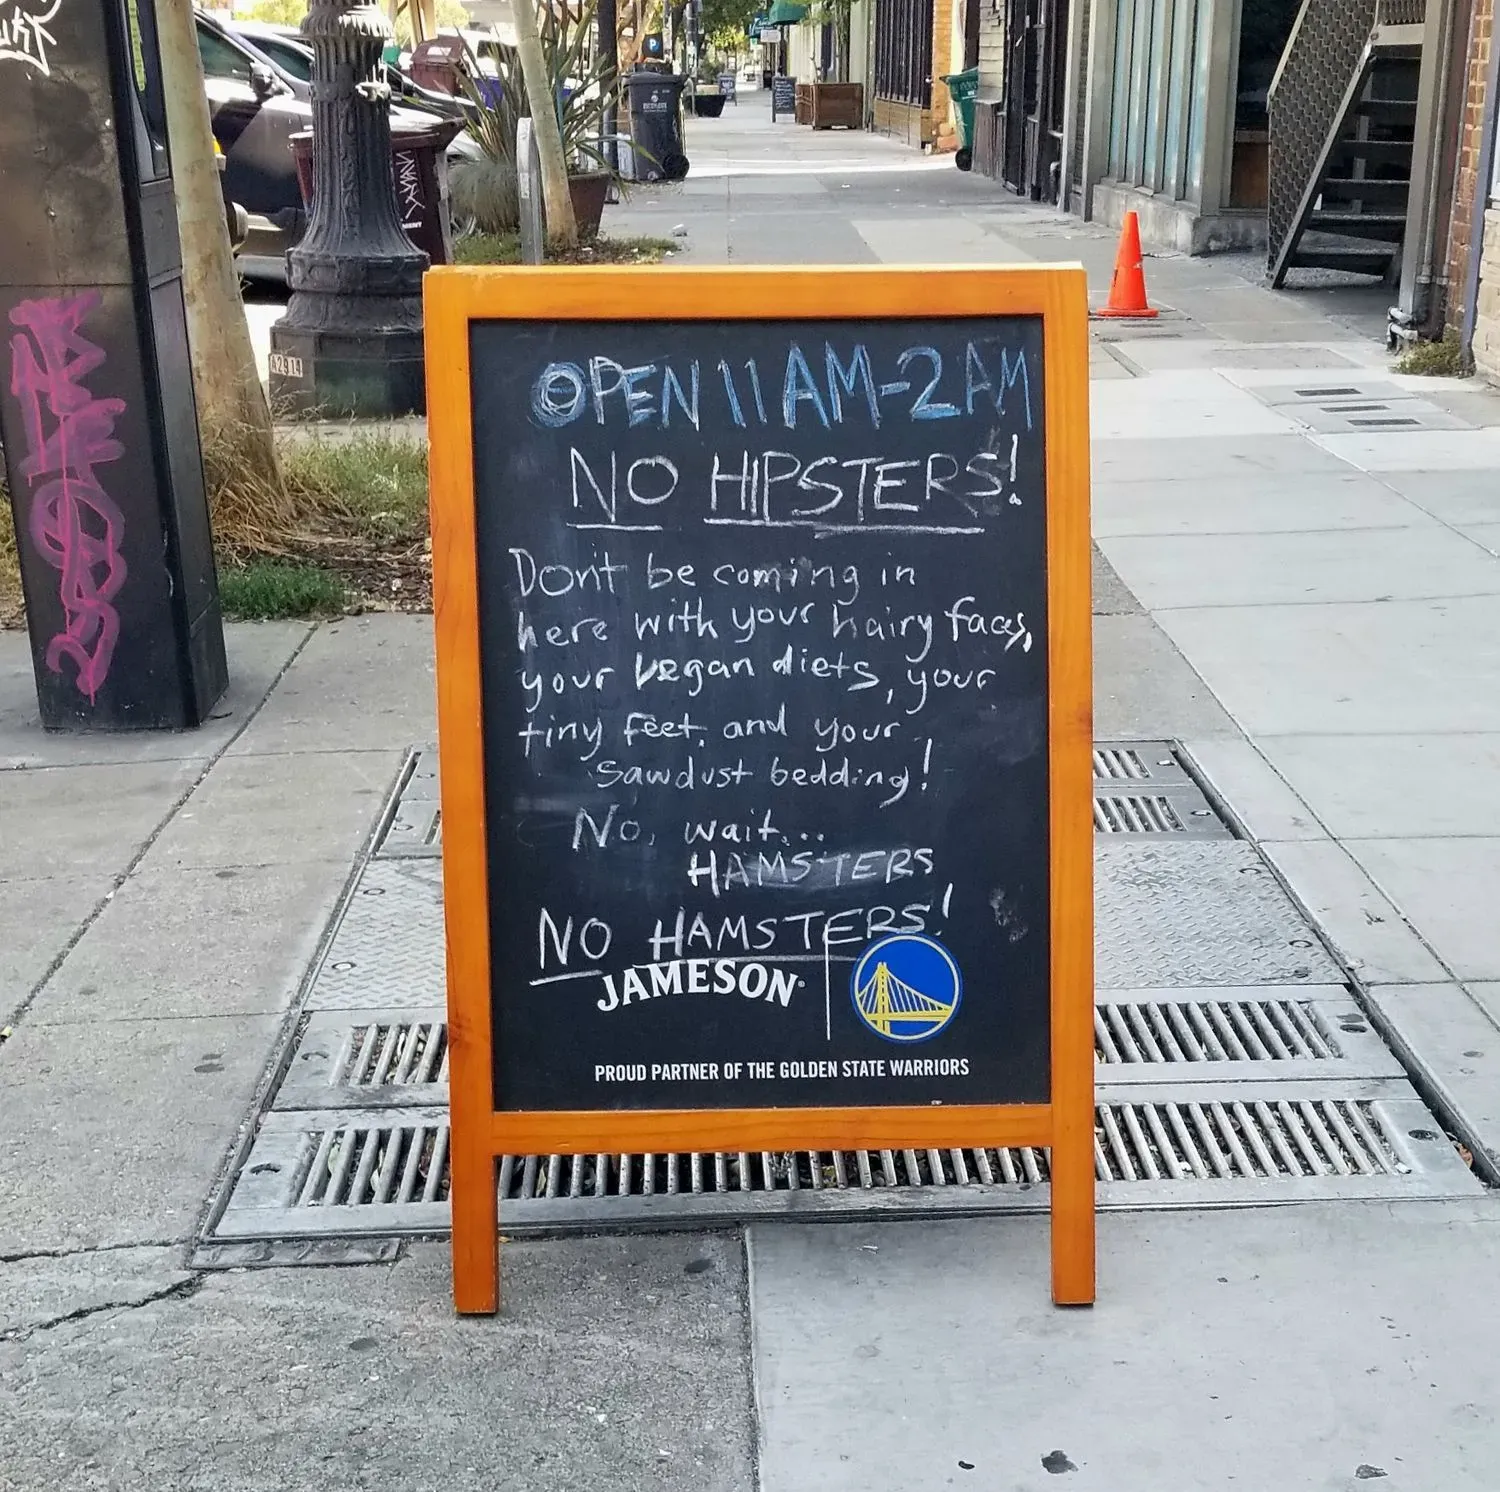 OPEN 11 AM-2AM
NO HIPSTERS!
Don't be coming in
here with your hairy faces,
your vegan diets, your
tiny feet, and your
sawdust bedding!
No, wait...
HAMSTERS
NO HAMSTERS!
JAMESON®
PROUD PARTNER OF THE GOLDEN STATE WARRIORS
A2914
P